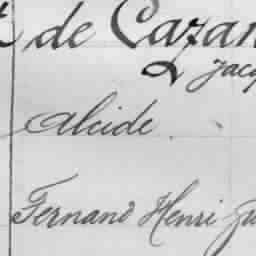 de Cazan
Jacq
Alcide
Fernand Henri Ju